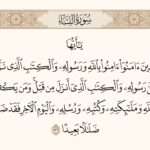 سُورَةُ النِّسَاءِ
يَٰٓأَيُّهَا
ءَامَنُوٓا۟ ءَامِنُوا۟ بِٱللَّهِ وَرَسُولِهِۦ وَٱلْكِتَٰبِ ٱلَّذِى
وَٱلْكِتَٰبِ ٱلَّذِىٓ أَنزَلَ مِن قَبْلُ وَمَن
وَمَلَٰٓئِكَتِهِۦ وَكُتُبِهِۦ وَرُسُلِهِۦ وَٱلْيَوْمِ ٱلْءَاخِرِ فَقَدْ
ضَلَٰلًۢا بَعِيدًا